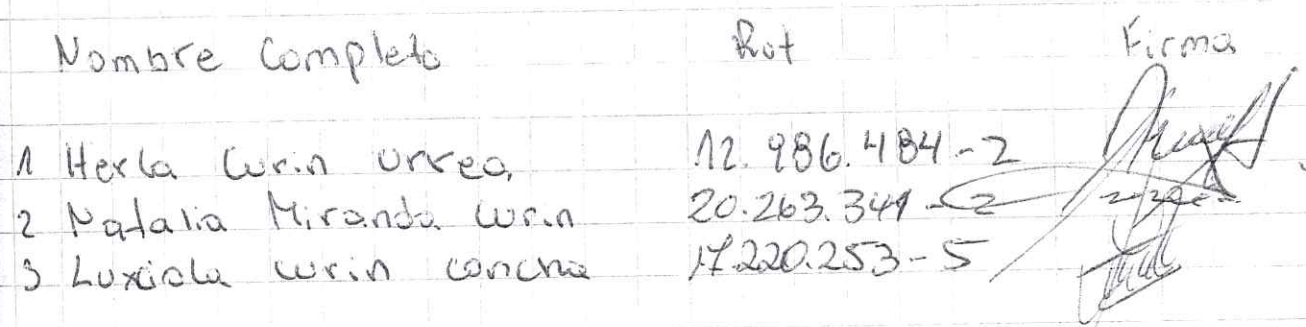 Nombre Completo Rut Firma
1 Herla Curin urrea 12.986.484-2
2 Natalia Miranda curin 20.263.341-2
3 Luxiola curin concha 17.220.253-5